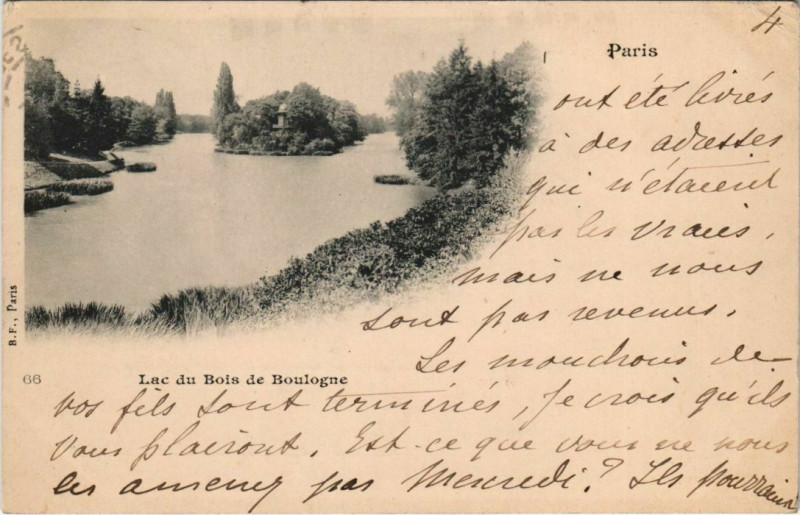 4
Paris
ont été livrés
à des adresses
qui n'étaient
pas les vraies,
mais ne nous
sont pas revenus.
Les mouchoirs de
vos fils sont terminés, je crois qu'ils
vous plairont. Est-ce que vous ne nous
les amenez pas Mercredi? Ils pourraient
B.F., Paris
66 Lac du Bois de Boulogne